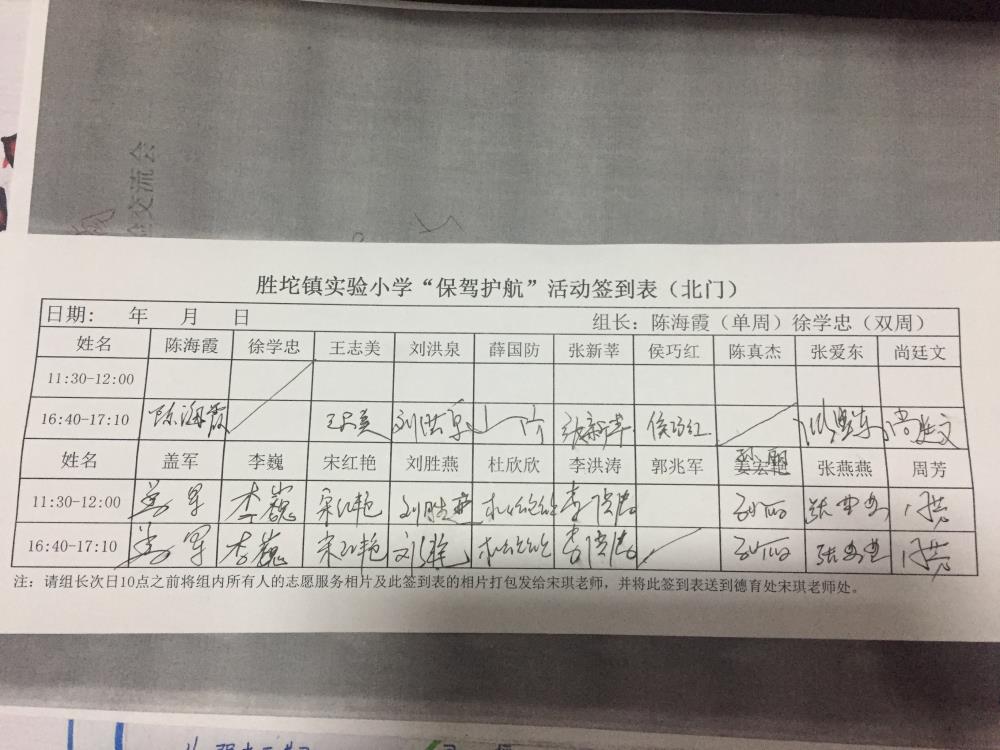 经交流会
胜坨镇实验小学“保驾护航”活动签到表（北门）
日期： 年 月 日 组长：陈海霞（单周）徐学忠（双周）
姓名 陈海霞 徐学忠 王志美 刘洪泉 薛国防 张新莘 侯巧红 陈真杰 张爱东 尚廷文
11:30-12:00
16:40-17:10 陈海霞 王志美 刘洪泉 张新莘 侯巧红 张爱东 尚廷文
姓名 盖军 李巍 宋红艳 刘胜燕 杜欣欣 李洪涛 郭兆军 姜宏艳 张燕燕 周芳
11:30-12:00 盖军 李巍 宋红艳 刘胜燕 杜欣欣 李洪涛 张燕燕 周芳
16:40-17:10 盖军 李巍 宋红艳 刘胜燕 杜欣欣 李洪涛 张燕燕 周芳
注：请组长次日10点之前将组内所有人的志愿服务相片及此签到表的相片打包发给宋琪老师，并将此签到表送到德育处宋琪老师处。